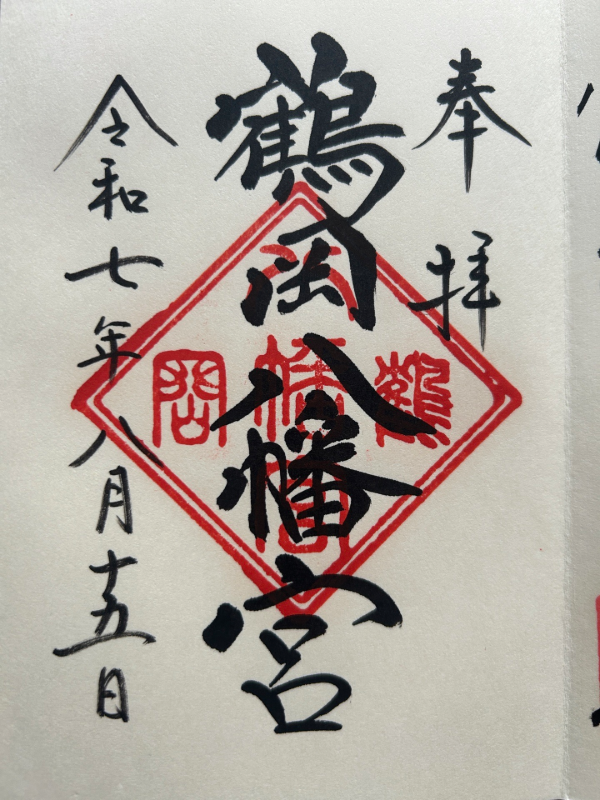 奉拝
鶴岡八幡宮
令和七年八月十五日
鶴
岡
八幡宮